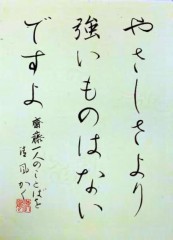 やさしさより
強いものはない
ですよ
齋藤一人のことばを
かく